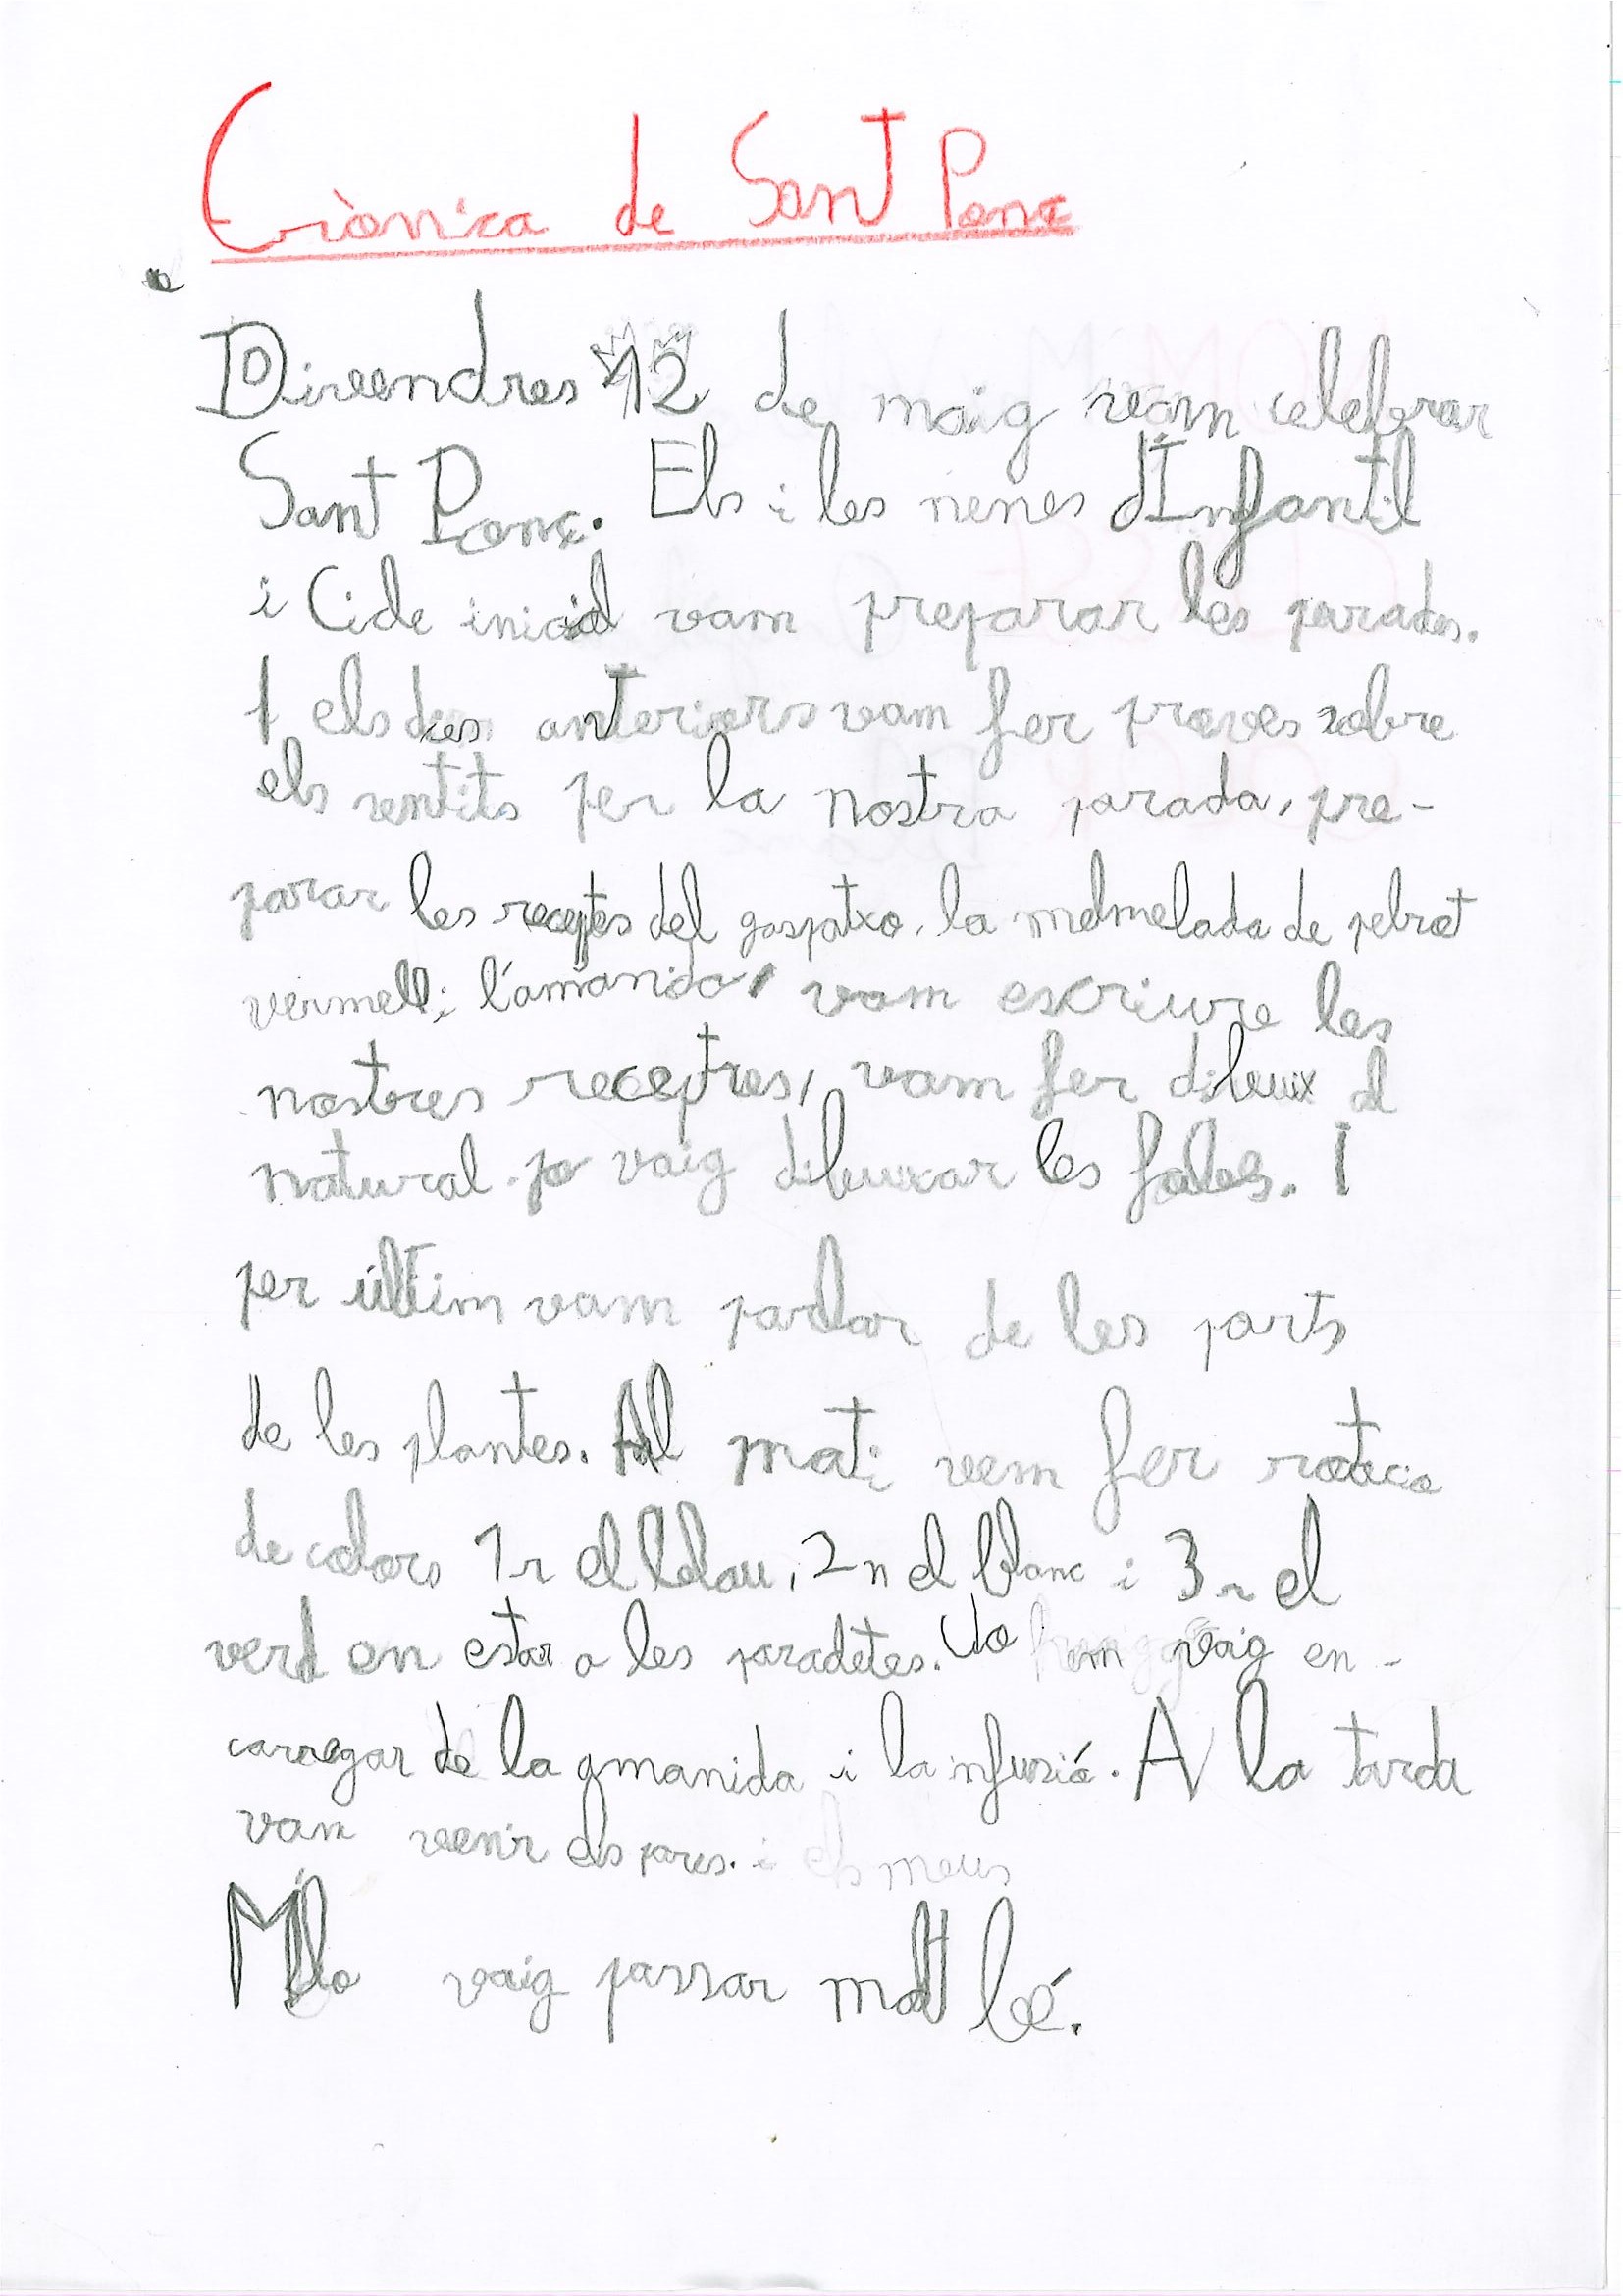 Crònica de Sant Ponç
Divendres 12 de maig vam celebrar
Sant Ponç. Els i les nenes d'Infantil
i Cicle inicial vam preparar les parades.
I els dies anteriors vam fer proves sobre
els sentits per la nostra parada, pre-
parar les receptes del gaspatxo, la melmelada de pebrot
vermell i l'amanida, vam escriure les
nostres receptres, vam fer dibuix al
natural. jo vaig dibuixar les fabes. I
per últim vam parlar de les parts
de les plantes. Al mati vem fer rotacio
de colors 1r el blau, 2n el blanc i 3r el
verd en estar a les paradetes. Jo em vaig en-
carregar de la amanida i la infusió. A la tarda
vam venir els pares. i els meus
M'lo vaig passar molt bé.